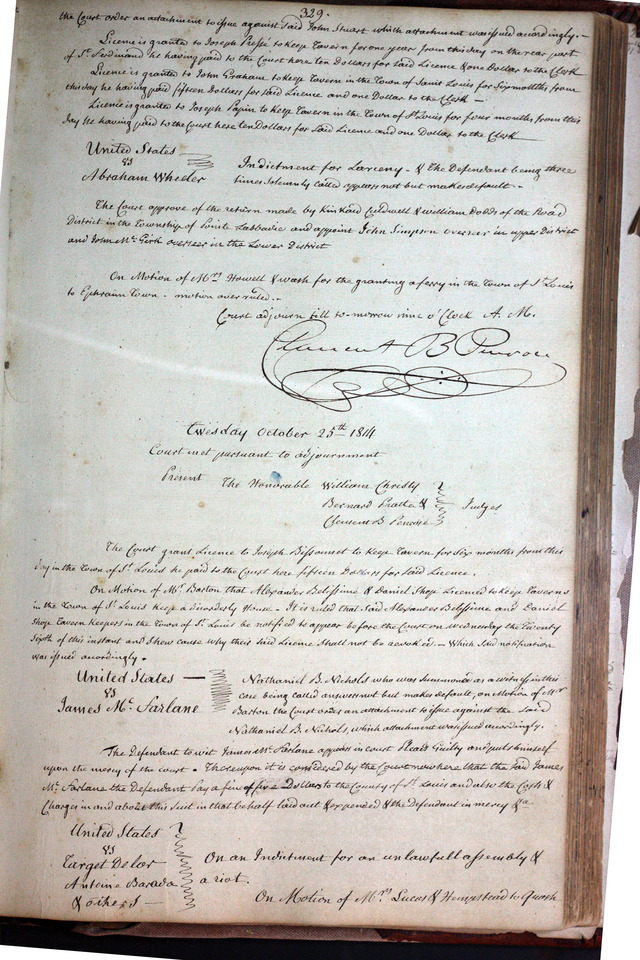 329.
the Court order an attachment to issue against said John Stuart which attachment was issued accordingly.
Licence is granted to Joseph to keep Tavern for one year from this day on the rear part
of St. Ferdinand he having paid to the Court here ten Dollars for said Licence & one Dollar to the Clerk
Licence is granted to John Grahame to keep Tavern in the Town of Saint Louis for Six months from
this day he having paid fifteen Dollars for said Licence and one Dollar to the Clerk —
Licence is granted to Joseph Papin to keep Tavern in the Town of St Louis for four months from this
day he having paid to the Court here ten Dollars for said Licence and one Dollar to the Clerk —
United States
vs
Abraham Wheeler
Indictment for Larceny - & The Defendant being three
times solemnly called appears not but makes default -
The Court approve of the return made by Kinkaid Caldwell & William Dodds of the Road
District in the Township of Labbadie and appoint John Simpson overseer in upper District
and John Mc. Girk overseer in the Lower District
On Motion of Mrs Howell & Wash for the granting a ferry in the Town of St Louis
to Ephraim Town - motion over ruled -
Court adjourn till to-morrow nine o'Clock A. M.
Clement B Penrose
Twesday October 25th 1814
Court met pursuant to adjournment
Present The Honorable William Christy
Bernard Pratte & Judges
Clement B Penrose
The Court grant Licence to Joseph Bissonnet to keep Tavern for Six months from this
day in the Town of St. Louis he paid to the Court here fifteen Dollars for said Licence.
On Motion of Mr. Barton that Alexander Belssime & Daniel Shop Licenced to keep Taverns
in the Town of St Louis keep a disorderly House - It is ruled that said Alexander Belssime and Daniel
Shop Tavern keepers in the Town of St. Louis be notified to appear before the Court on Wednesday the Twenty
Sixth of this instant and shew cause why their said Licence shall not be revoked - Which said notification
was issued accordingly.
United States —
vs
James Mc. Farlane
Nathaniel B. Nichols who was summoned as a witness in this
case being called answers not but makes default, on Motion of Mr
Barton the Court order an attachment to issue against the said
Nathaniel B. Nichols, which attachment was issued accordingly.
The Defendant to wit James Mc. Farlane appears in court pleads Guilty and puts himself
upon the mercy of the court - Thereupon it is considered by the Court now here that the said James
Mc. Farlane the Defendant Pay a fine of five Dollars to the County of St. Louis and also the Costs &
Charges in and about this Suit in that behalf laid out & expended & the Defendant in mercy &a
United States
vs
Target Delor
Antoine Barada
& others —
On an Indictment for an unlawfull assembly &
a riot.
On Motion of Mrs Lucas & Hempstead to quash